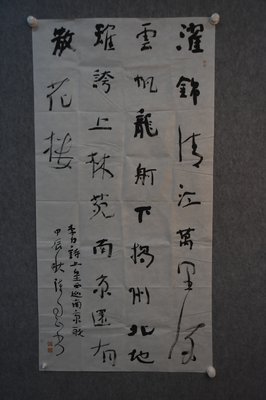 濯錦清江萬里流
雲帆龍舸下揚州北地
雖誇上林苑南京還有
散花樓
李白詩上皇西巡南京歌
甲辰秋